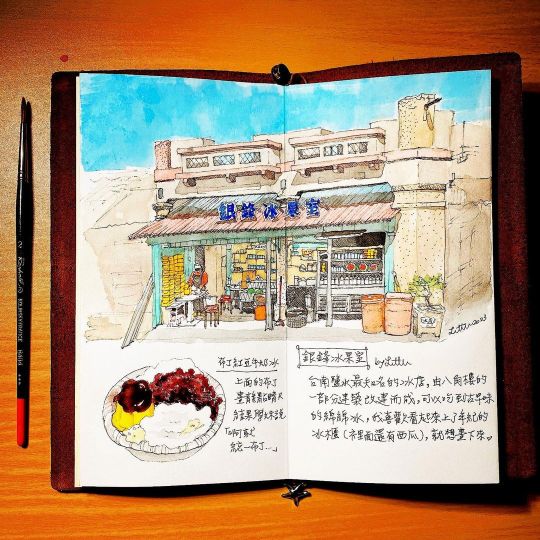 銀鋒冰果室
布丁紅豆牛奶冰
上面的布丁
結果闆娘說
「啊就
統一布丁...」
銀鋒冰果室 by
台南鹽水最知名的冰店，由八角樓的
一部分建築改建而成，可以吃到古早味
的綿綿冰，我喜歡看起來上了年紀的
冰櫃(裡面還有西瓜)，就想畫下來。